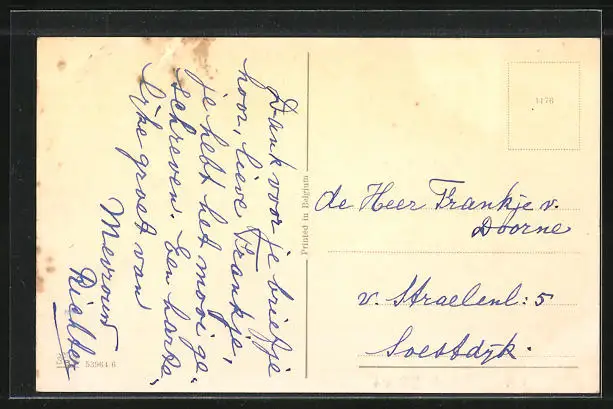 Dank voor je briefje
hoor, lieve Frankje,
je hebt het mooi ge-
schreven. Een harte-
lijke groet van
Mevrouw
Richter
53964 6
Printed in Belgium
1176
de Heer Frankje v.
Doorne
v. Straelenl: 5
Soestdijk.